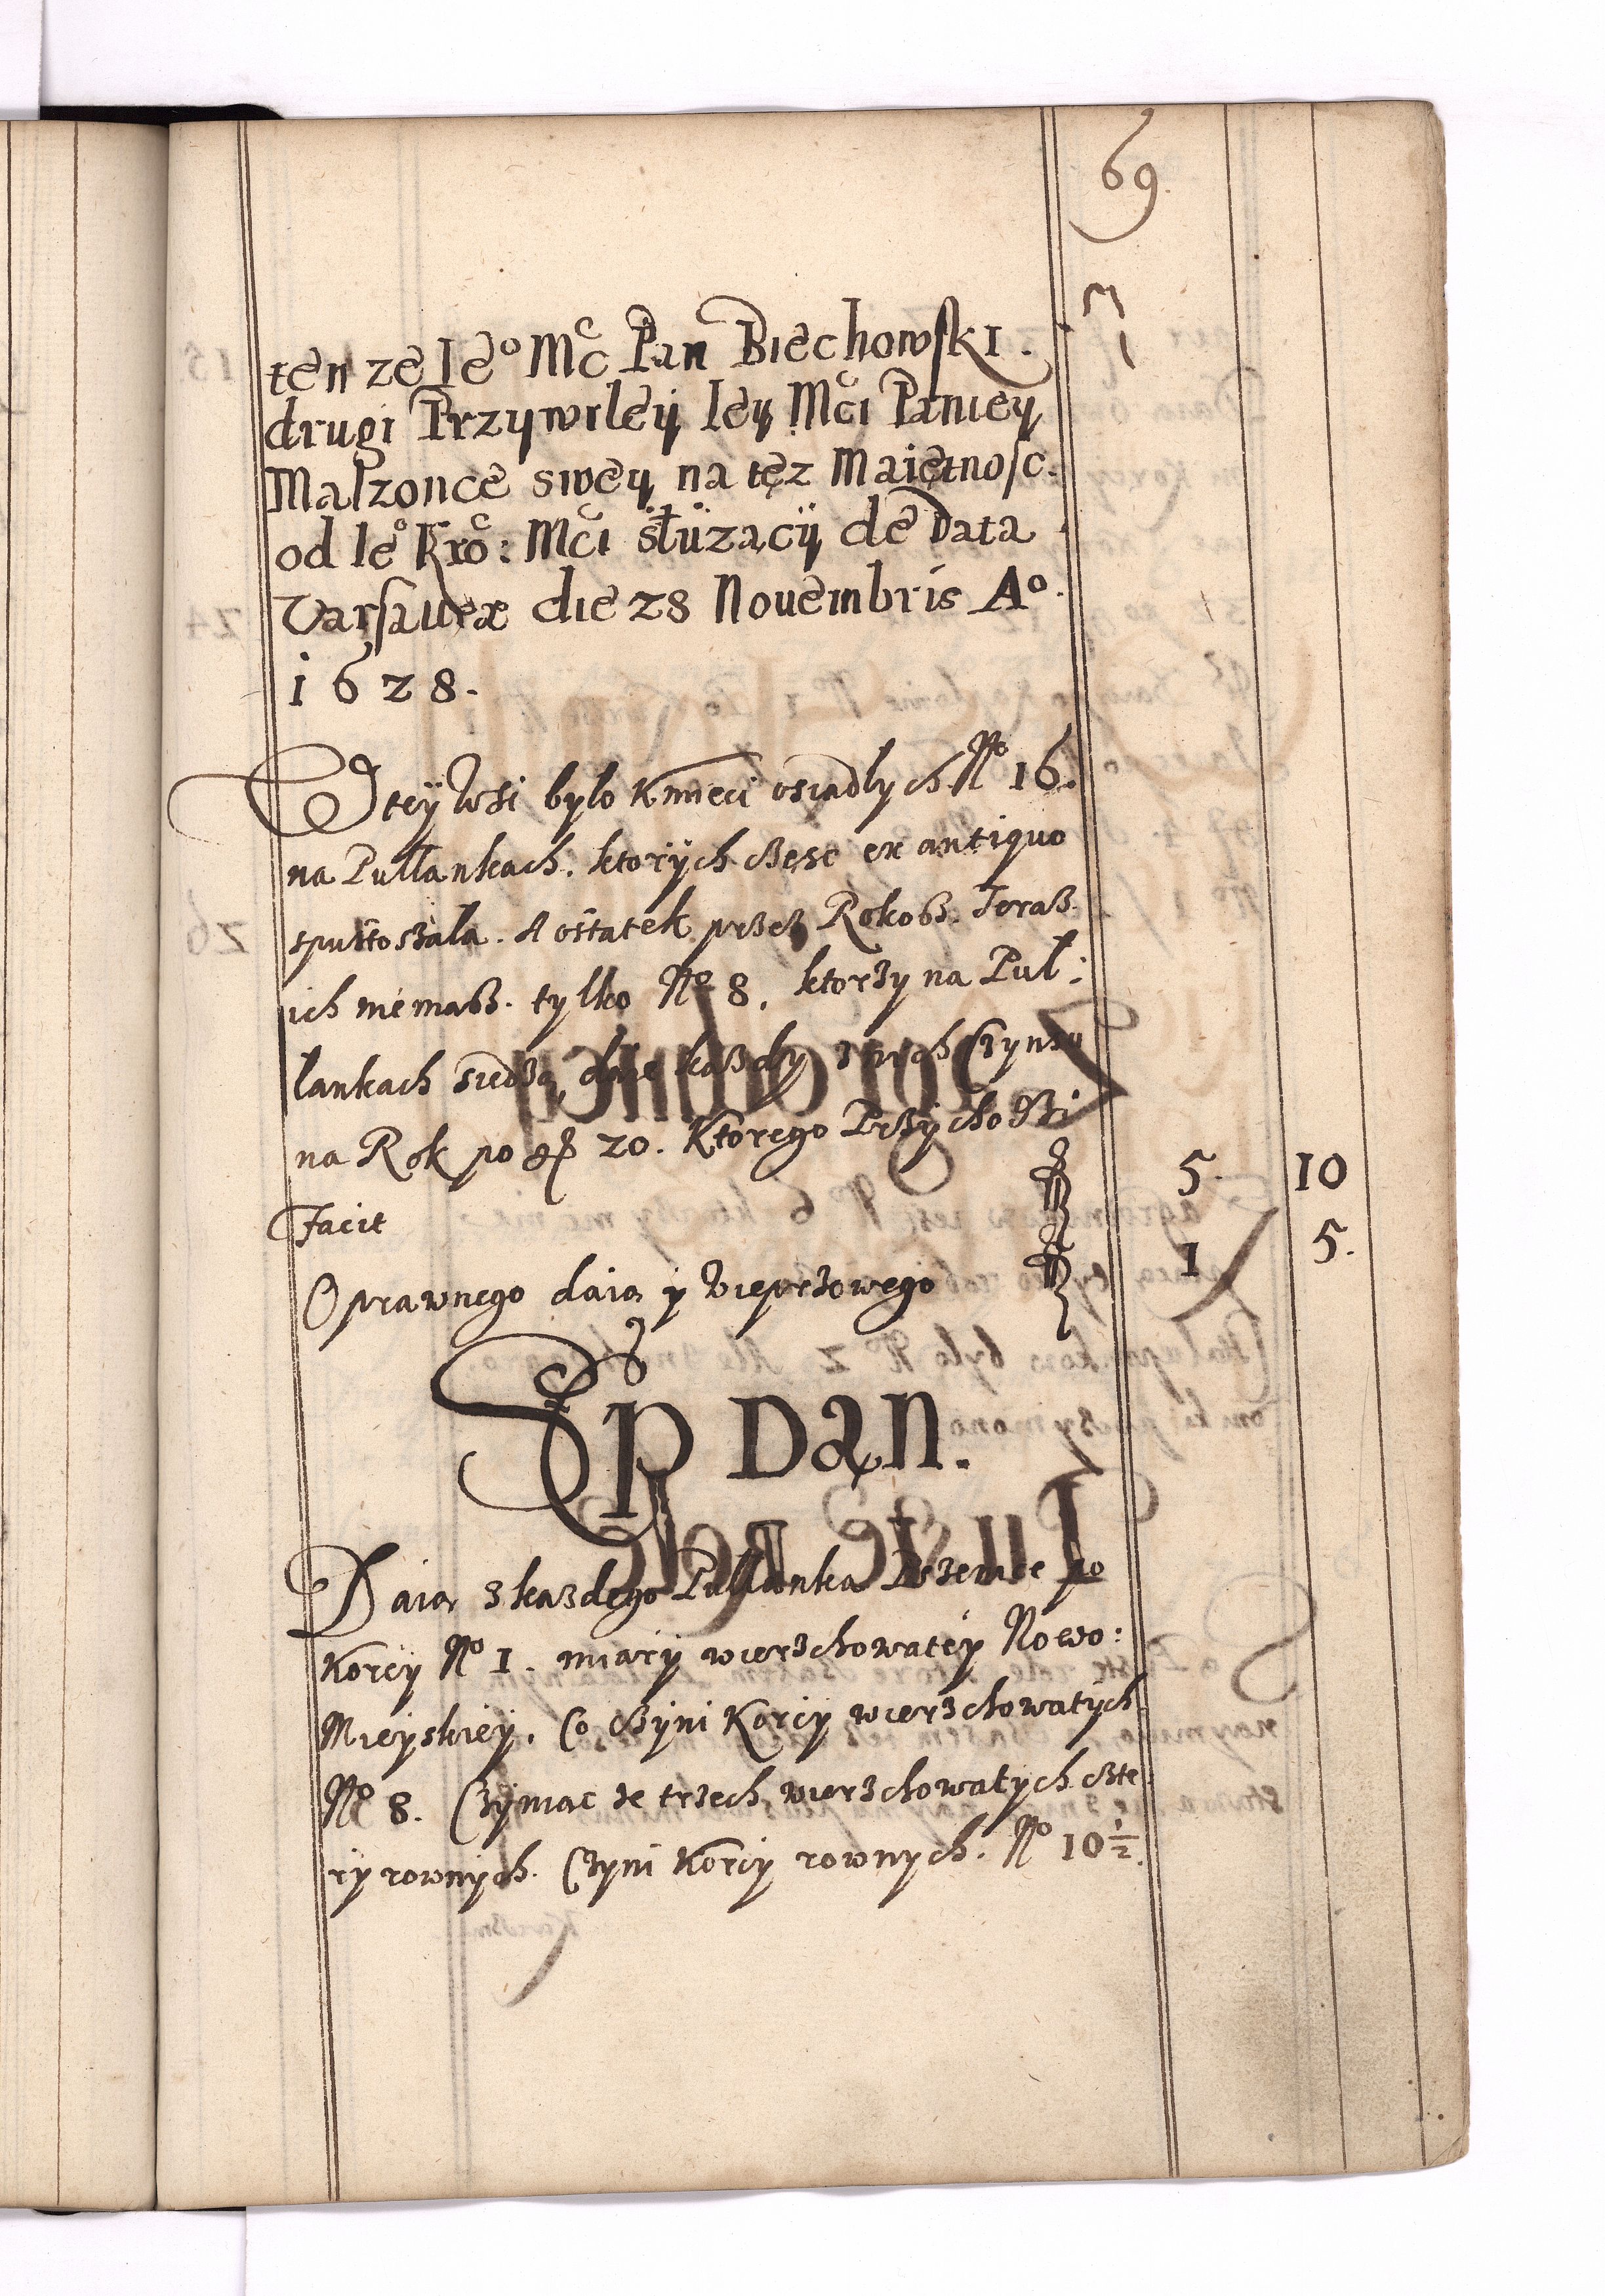 69.
71
ten ze Ieº Mc Pan Biechowski.
drugi Przywiley Iey Mci Paniey
Malzonce swey na tęz Maiętnosc.
od Ieº Kro: Mci słuzącÿ de Data
Varsaviæ die 28 Novembris Aº.
1628.
W teÿ Wsi bylo Kmieci osiadlych Nº 16.
na Pullankach. ktorÿch częsc ex antiquo
spustoszala. A ostatek przez Rokosz. Teraz
ich niemasz. tylko Nº 8. ktorzy na Pul:
lankach siedzą, daie kazdy z nich Czynszu
na Rok po gr 20. Ktorego Przÿchodzi
Facit fl 5. 10
Oprawnego daią y Wieprzowego fl 1 5.
Sęp Dan.
Daią z kazdego Pullanka Pszenice po
Korcy Nº 1. miarÿ wierzchowateÿ Nowo:
Mieÿskieÿ. Co czÿni Korcÿ wierzchowatÿch
Nº 8. Czÿniac ze trzech wierzchowatÿch czte
rÿ rownÿch. Czyni Korcy rownych. Nº 10½.